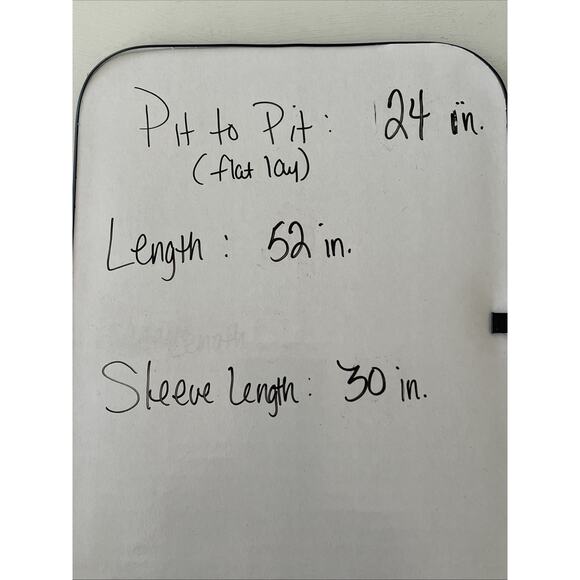 Pit to Pit: 24 in.
(flat lay)
Length: 52 in.
Sleeve Length: 30 in.